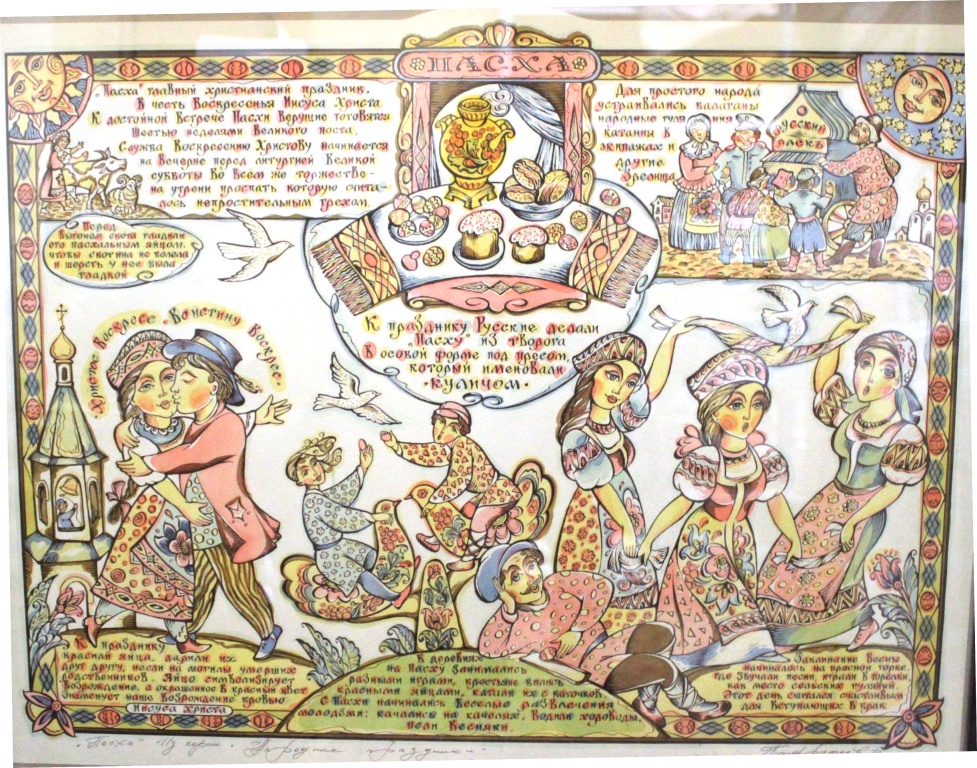 ПАСХА
„Пасха" главный христианский праздник.
В честь Воскресенья Иисуса Христа
К достойной Встрече Пасхи Верущие готовятся
Шестью неделями Великого поста.
Служба Воскресению Христову начинается
на Вечерне перед литургией Великой
субботы Во Всем же торжестве-
на утрени проспать которую счита-
лось непростительным грехом.
Для простого народа
устраивались балаганы
народные гуляния
катания в
экипажах и
другие
зрелища
Русский
раекъ
Перед
Выгоном скота гладили
его пасхальным яйцом,
чтобы скотина не болела
и шерсть у нее была
гладкой
Христос Воскресе Воистину Воскресе
К празднику Русские делали
„Пасху" из творога
В особой форме под пресом,
который именовали
куличом
К празднику
красили яйца, дарили их
друг другу, несли на могилы умерших
родственников. Яйцо символизирует
Возрождение, а окрашенное в красный цвет
знаменует наше Возрождение кровью
Иисуса Христа
В деревнях
на Пасху занимались
разными играми, крестьяне
красными яйцами, катали их с каточков.
С Пасхи начинались Веселые развлечения
молодёжи: качались на качелях, Водили хороводы,
пели Веснянки.
Заклинание Весны
начиналось на красной горке,
где звучали песни, играли в горелки,
как место сельских гуляний.
Этот день считался счастливым
для Вступающих В брак
„Пасха" Из серии „Народные праздники"